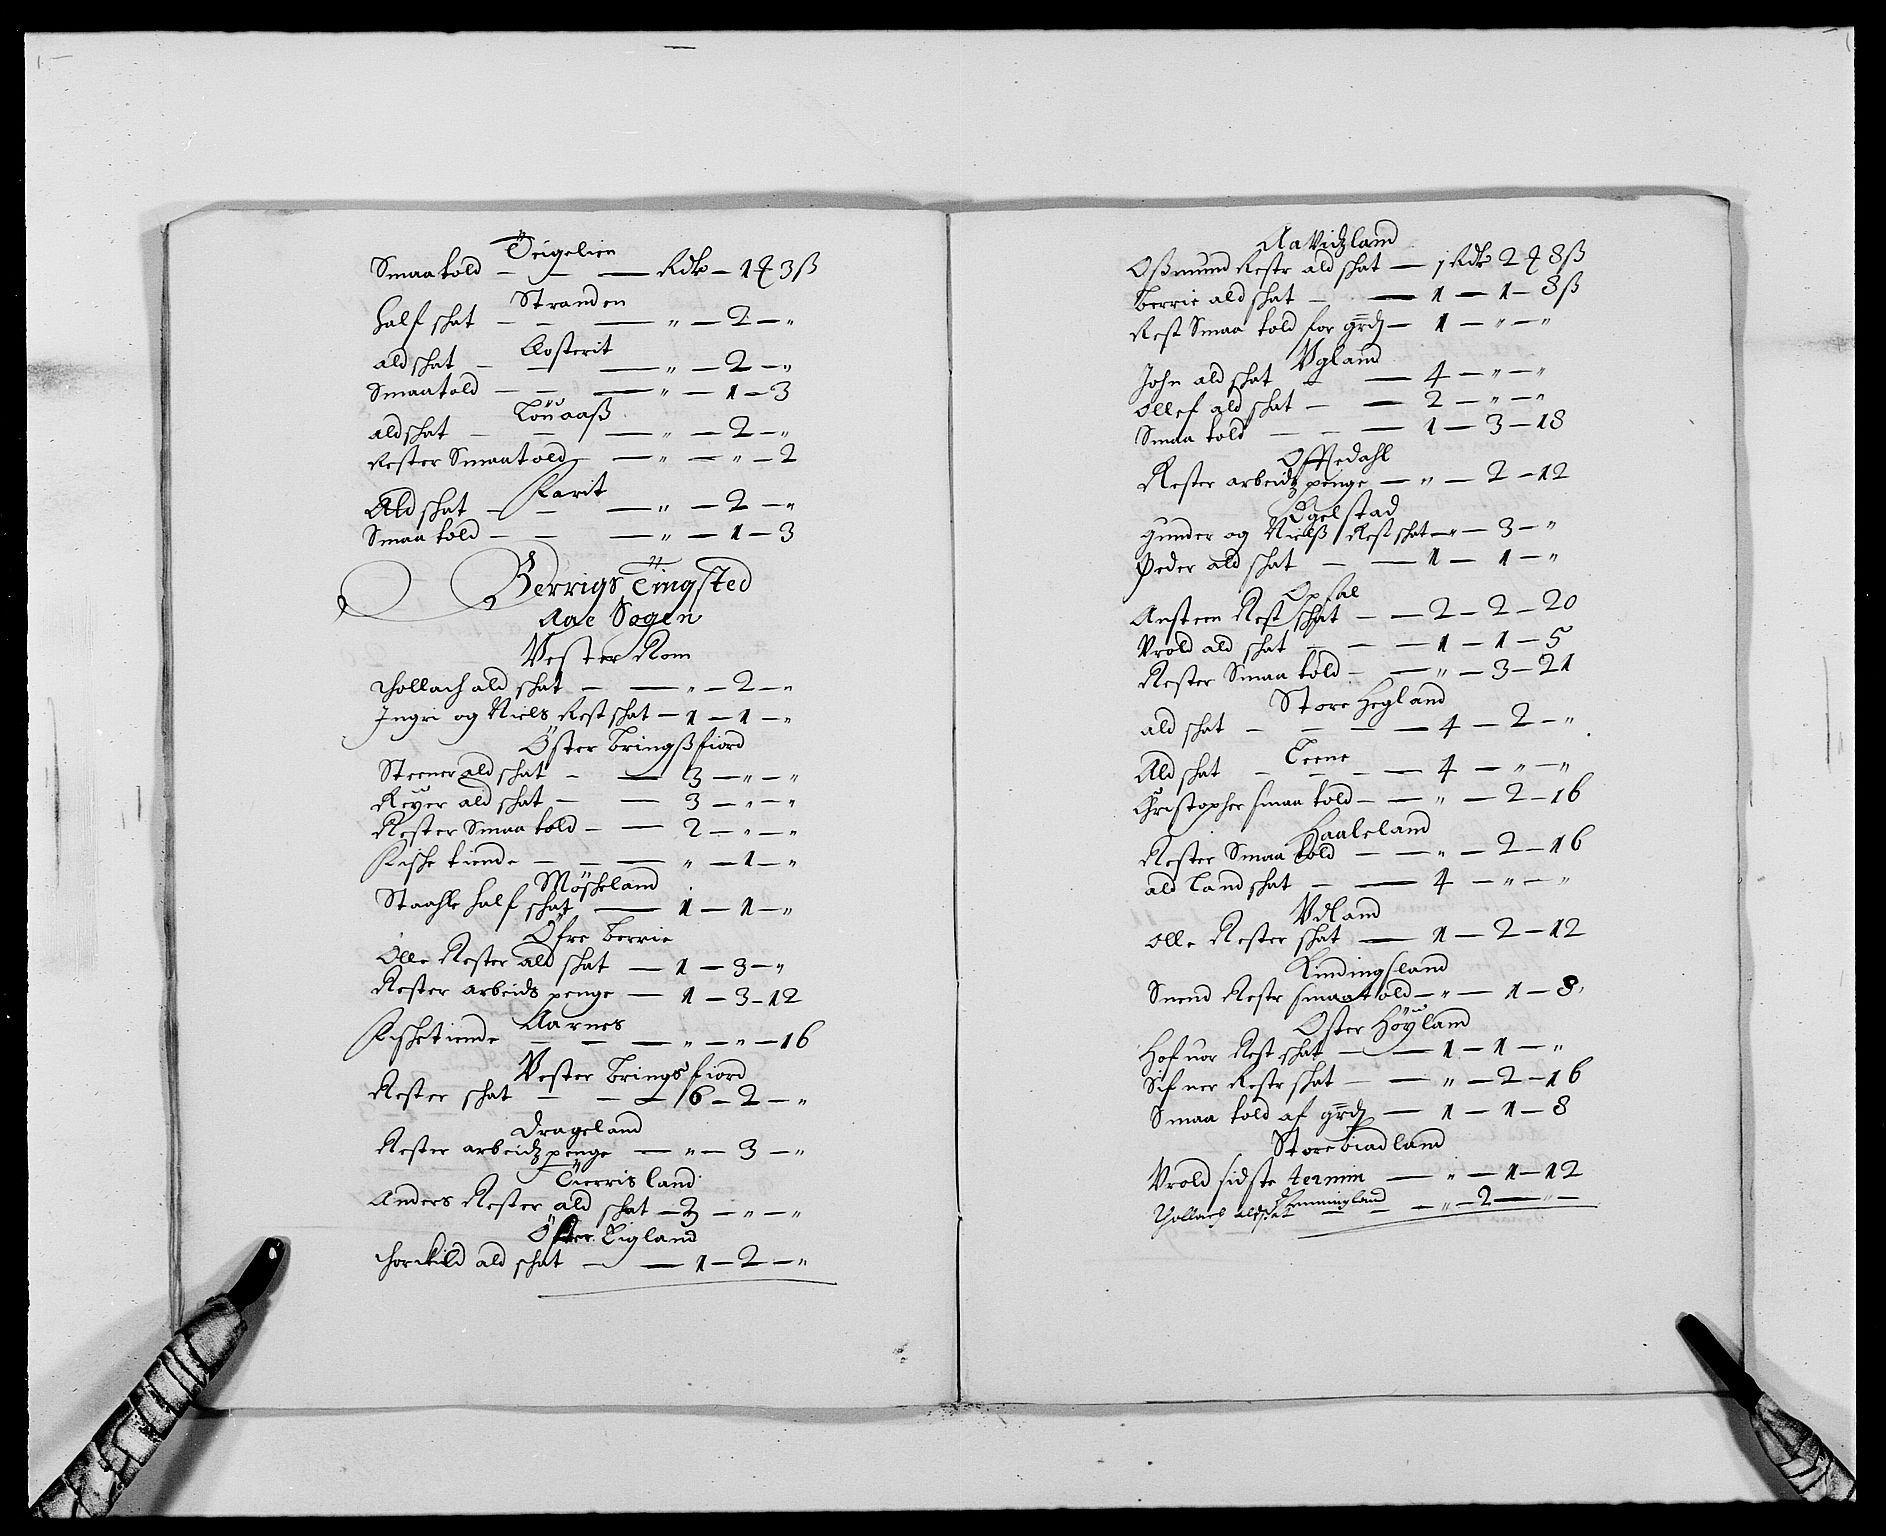 Öeigelien
Smaatold — — — Rdr — 1 ₰ 3 ß
Stranden
half schat — — — " — 2 — "
Aosterit
ald schat — — — " — 2 — "
Smaatold — — — " — 1 — 3
Löuaaß
ald schat — — — " — 2 — "
Rester Smaatold — — " — " — 2
Farit
Ald schat — — — " — 2 — "
Smaa told — — — " — 1 — 3
Berrigs Tingsted
Aae Sogen
Vester Rom
Thollach ald schat — — " — 2 — "
Ingri og Niels Rest schat — 1 — 1 — "
Öster Bringßfiord
Steener ald schat — — 3 — " — "
Reyer ald schat — — 3 — " — "
Rester Smaa told — — 2 — " — "
Fiske tiende — — — " — 1 — "
Möskeland
Staahle half schat — 1 — 1 — "
Öfre Berrie
Olle Rester ald schat — 1 — 3 — "
Rester arbeids penge — 1 — 3 — 12
Aarnes
Fisketiende — — — " — " — 16
Vester Brings fiord
Rester schat — — — 6 — 2 — "
Drageland
Rester arbeidz penge — " — 3 — "
Tierris land
Anders Rester ald schat — 3 — " — "
Öster Eigland
Thorkild ald schat — — 1 — 2 — "
Aa Vidzland
Oßmund Restr ald schat — 1 Rdr 2 ₰ 8 ß
Berrie ald schat — — 1 — 1 — 8 ß
Rest Smaa told for grd — 1 — " — "
Vgland
John ald schat — — 4 — " — "
Ollef ald schat — — 2 — " — "
Smaa told — — — 1 — 3 — 18
Offedahl
Rester arbeidz penge — " — 2 — 12
Egelstad
Gunder og Nielß Rest schat — " — 3 — "
Peder ald schat — — 1 — 1 — "
Opsal
Ansteen Rest schat — — 2 — 2 — 20
Vrold ald schat — — — 1 — 1 — 5
Rester Smaa told — — " — 3 — 21
Store Hegland
ald schat — — — — 4 — 2 — "
Teene
Ald schat — — — — 4 — " — "
Christopher smaa told — — " — 2 — 16
Haaleland
Rester Smaa told — — " — 2 — 16
ald Land schat — — 4 — " — "
Vdland
Olle Rester schat — 1 — 2 — 12
Kindingsland
Suend Restr smaatold — " — 1 — 8
Öster Höyland
Hof uor Rest schat — — 1 — 1 — "
Sif uer Restr schat — — " — 2 — 16
Smaa told af grd — 1 — 1 — 8
Store öiadland
Vrold sidste termin — " — 1 — 12
Hemmingland
Thollach ald schat — — — " — 2 — " —